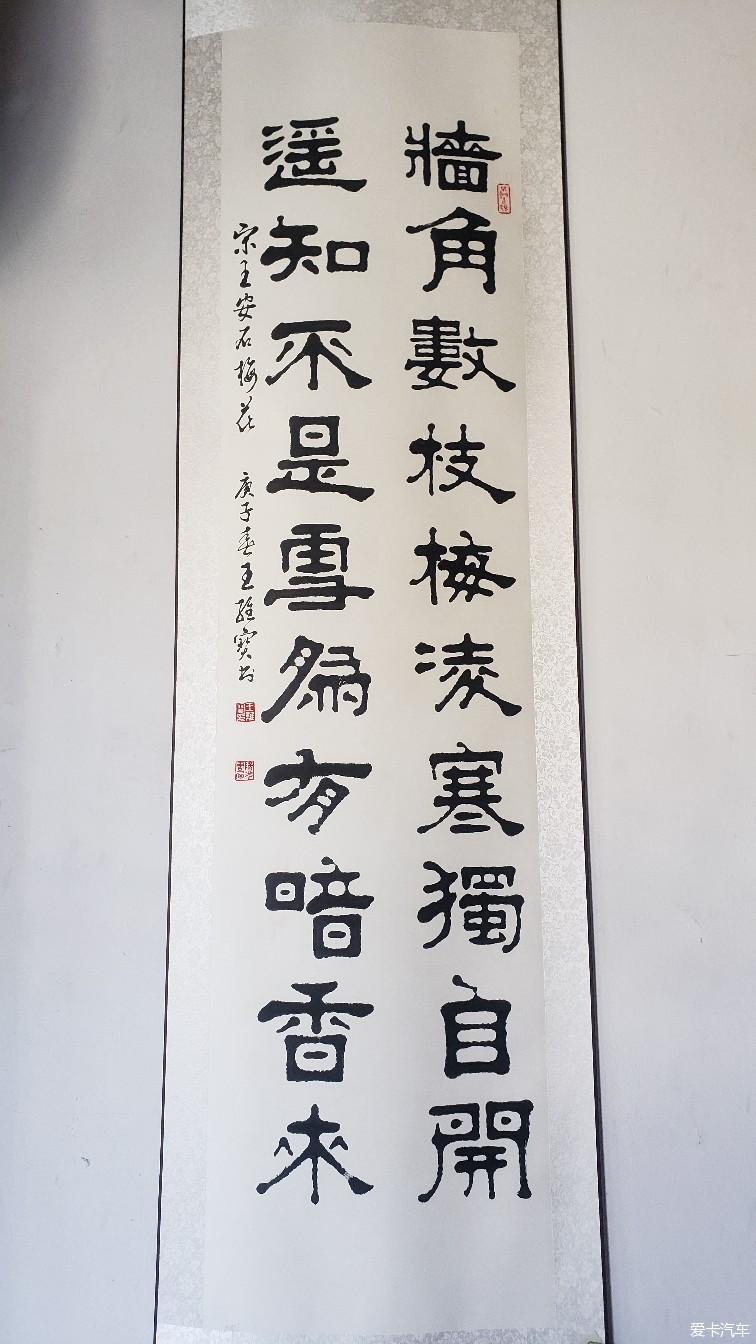 牆角數枝梅凌寒獨自開
遥知不是雪爲有暗香來
宋王安石梅花 庚子春王維寶书
爱卡汽车